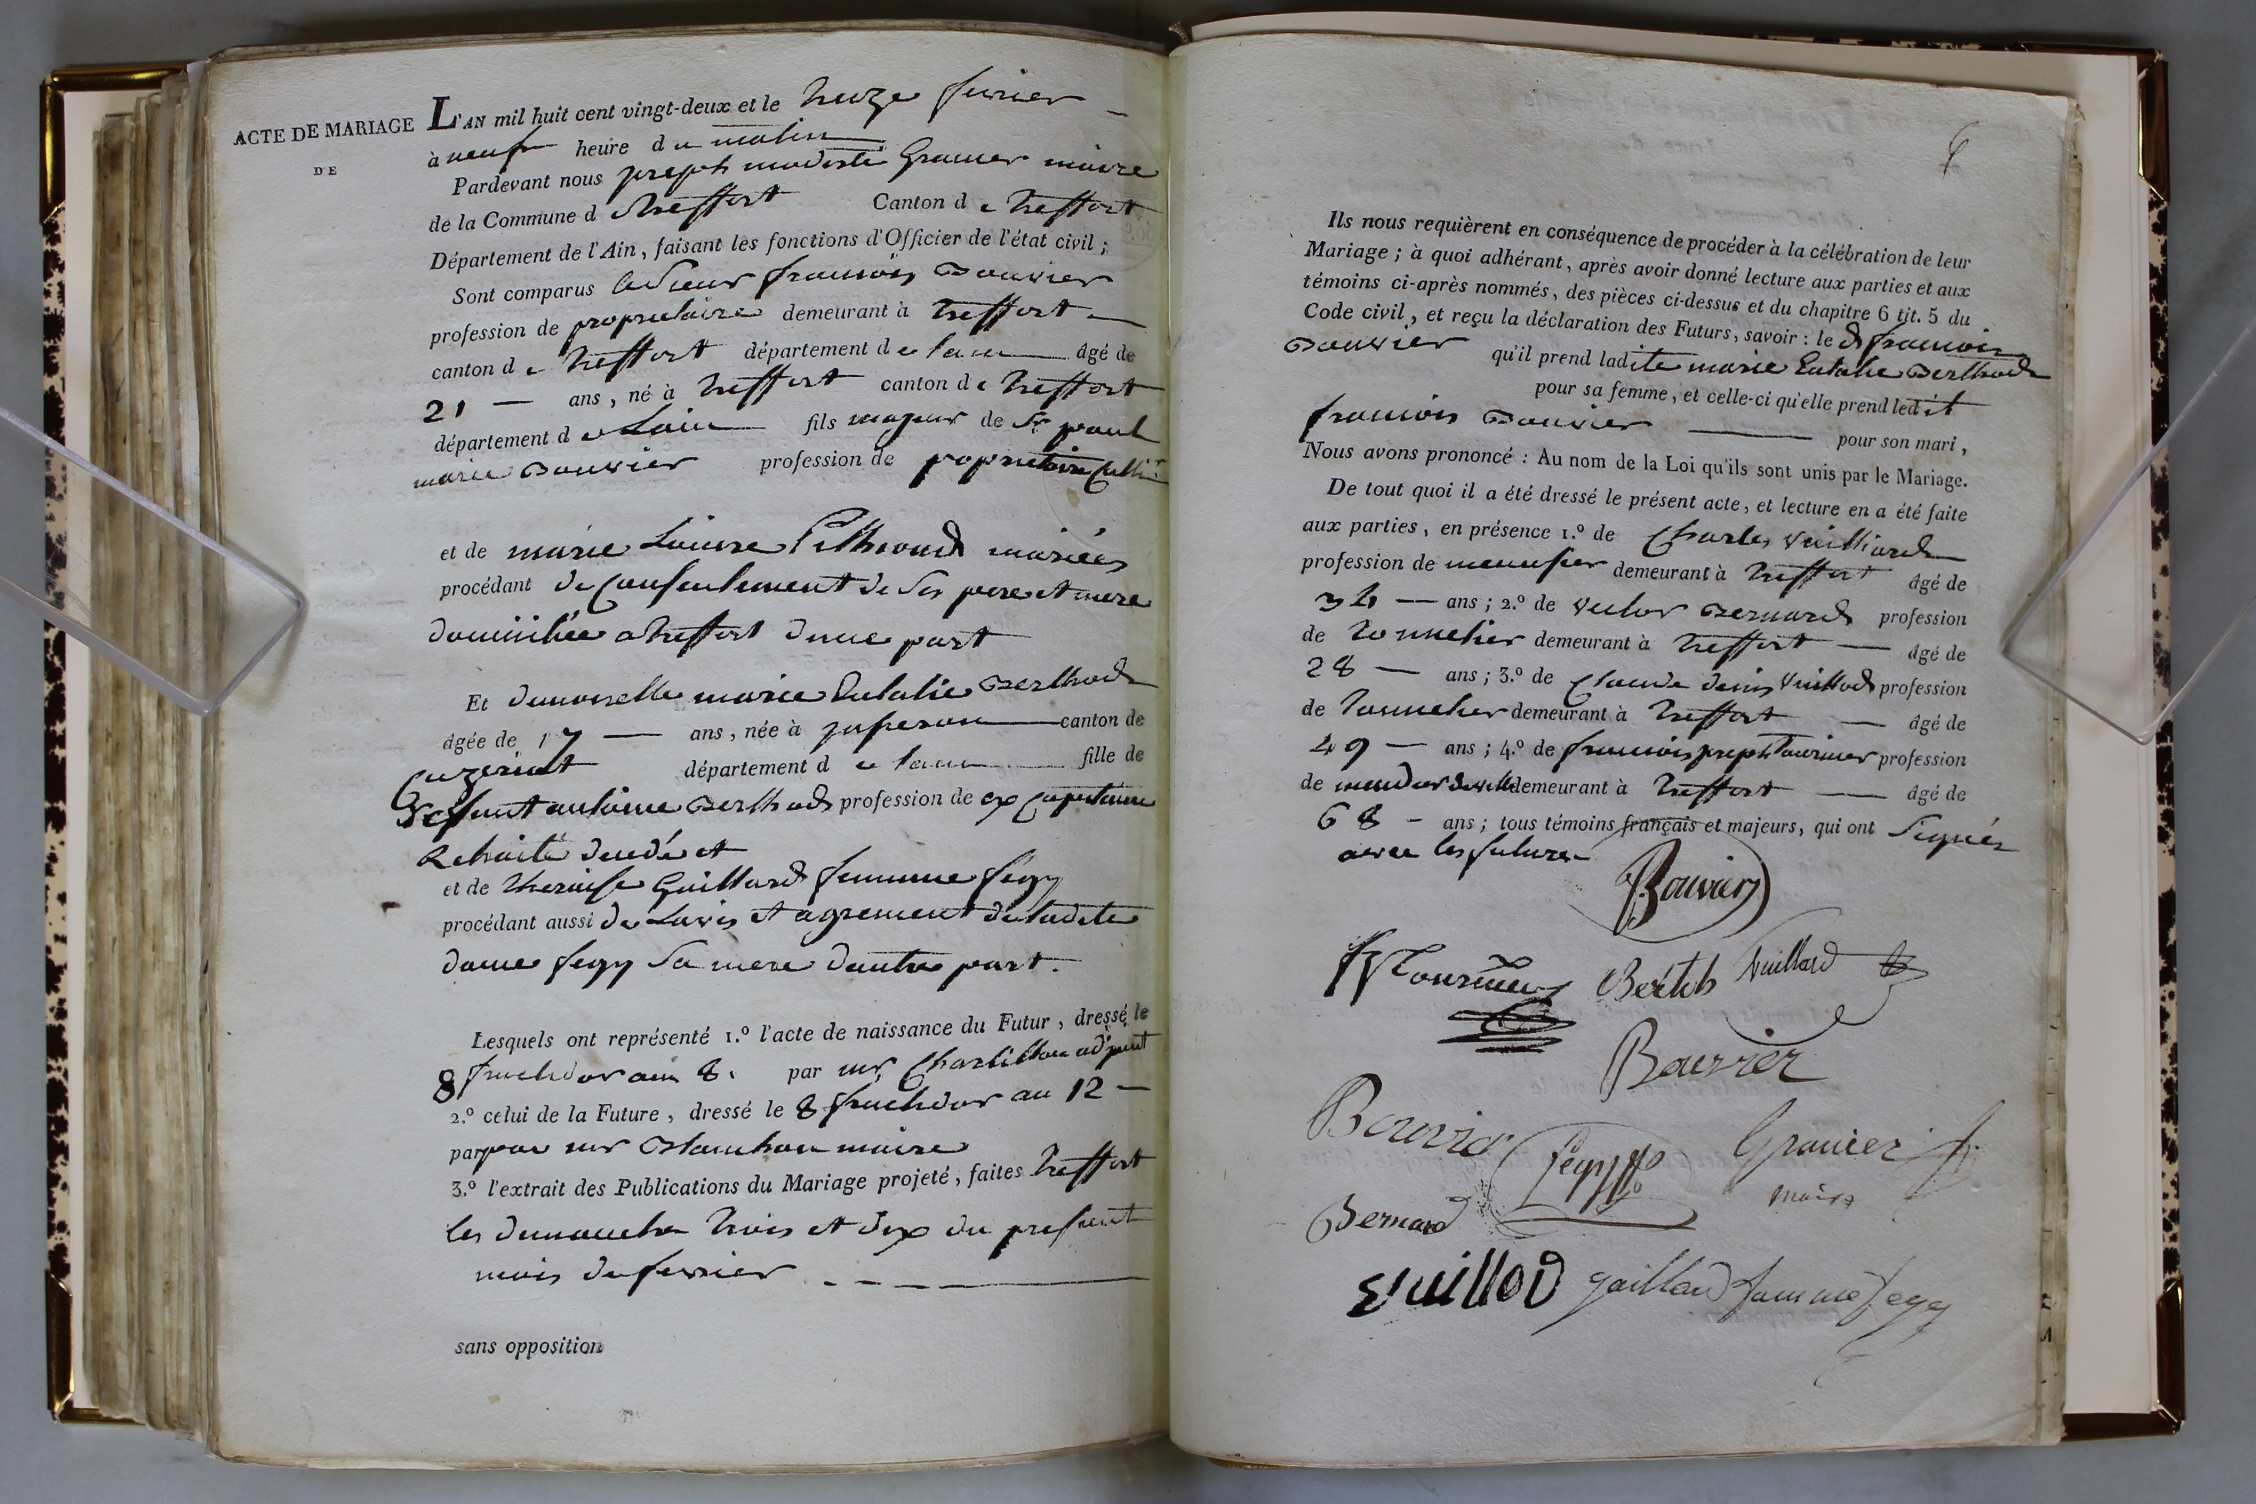 ACTE DE MARIAGE
DE
L'AN mil huit cent vingt-deux et le treize fevrier
à neuf heure du matin
Pardevant nous joseph modeste Granier maire
de la Commune de treffort Canton de treffort
Département de l'Ain, faisant les fonctions d'Officier de l'état civil ;
Sont comparus le Sieur francois Bouvier
profession de propriétaire demeurant à treffort
canton de treffort département de lain âgé de
21 ans, né à treffort canton de treffort
département de Lain fils majeur de Sr paul
marie Bouvier profession de propriétaire
et de marie mariés
procédant de Consentement de Ses pere et mere
domiciliée a treffort dune part
Et demoiselle marie Eulalie Berthod
âgée de 17 ans, née à jasseron canton de
Ceyzeriat département de lain fille de
defunt antoine Berthod profession de ex Capitaine
Retraité décédé et
et de theraise Gaillard femme fégy
procédant aussi de Lavis et agrement de ladite
dame fegy Sa mere dautre part.
Lesquels ont représenté 1.º l'acte de naissance du Futur, dressé le
8 fructidor an 8. par mr Chatillon adjoint
2.º celui de la Future, dressé le 8 fructidor an 12
par par mr Blanchon maire
3.º l'extrait des Publications du Mariage projeté, faites treffort
les dimanches trois et dix du present
mois de fevrier
sans opposition
Ils nous requièrent en conséquence de procéder à la célébration de leur
Mariage ; à quoi adhérant, après avoir donné lecture aux parties et aux
témoins ci-après nommés, des pièces ci-dessus et du chapitre 6 tit. 5 du
Code civil, et reçu la déclaration des Futurs, savoir : le d francois
Bouvier qu'il prend ladite marie Eulalie Berthod
pour sa femme, et celle-ci qu'elle prend ledit
francois Bouvier pour son mari,
Nous avons prononcé : Au nom de la Loi qu'ils sont unis par le Mariage.
De tout quoi il a été dressé le présent acte, et lecture en a été faite
aux parties, en présence 1.º de Charles Vuilliard
profession de menuisier demeurant à treffort âgé de
34 ans ; 2.º de victor Bernard profession
de tonnelier demeurant à treffort âgé de
28 ans ; 3.º de Claude denis Vuillod profession
de tonnelier demeurant à treffort âgé de
49 ans ; 4.º de francois joseph tournier profession
de demeurant à treffort âgé de
68 ans ; tous témoins français et majeurs, qui ont Signés
avec les futures
Bouvier
Tournier Bertod Vuillard
Bouvier
Bouvier fégy Granier
maire
Bernard
Vuillod gaillard famme fegy